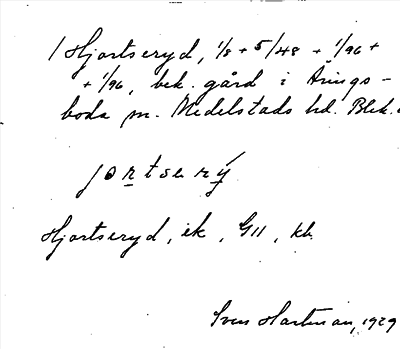 / Hjortseryd, 1/8 + 5/48 + 1/96 +
+ 1/96, bek. gård i Årings-
boda sn. Medelstads hd. Blek.
jortserý
Hjortseryd, ek, G11, kb.
Sven Hartman, 1929